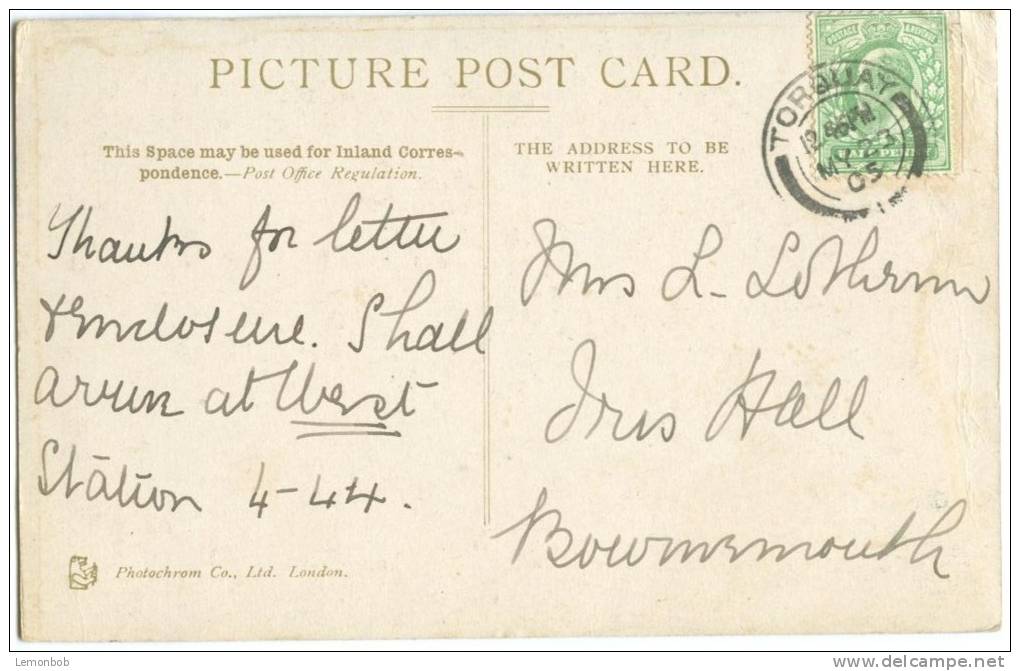 PICTURE POST CARD.
This Space may be used for Inland Corres-
pondence.—Post Office Regulation.
THE ADDRESS TO BE
WRITTEN HERE.
POSTAGE & REVENUE
TORQUAY
MY 23
05
Thanks for letter
& enclosure. Shall
arrive at West
Station 4-44.
Mrs L. Lotherin
Hall
Bournemouth
Photochrom Co., Ltd. London.
Lemonbob
delcampe.net